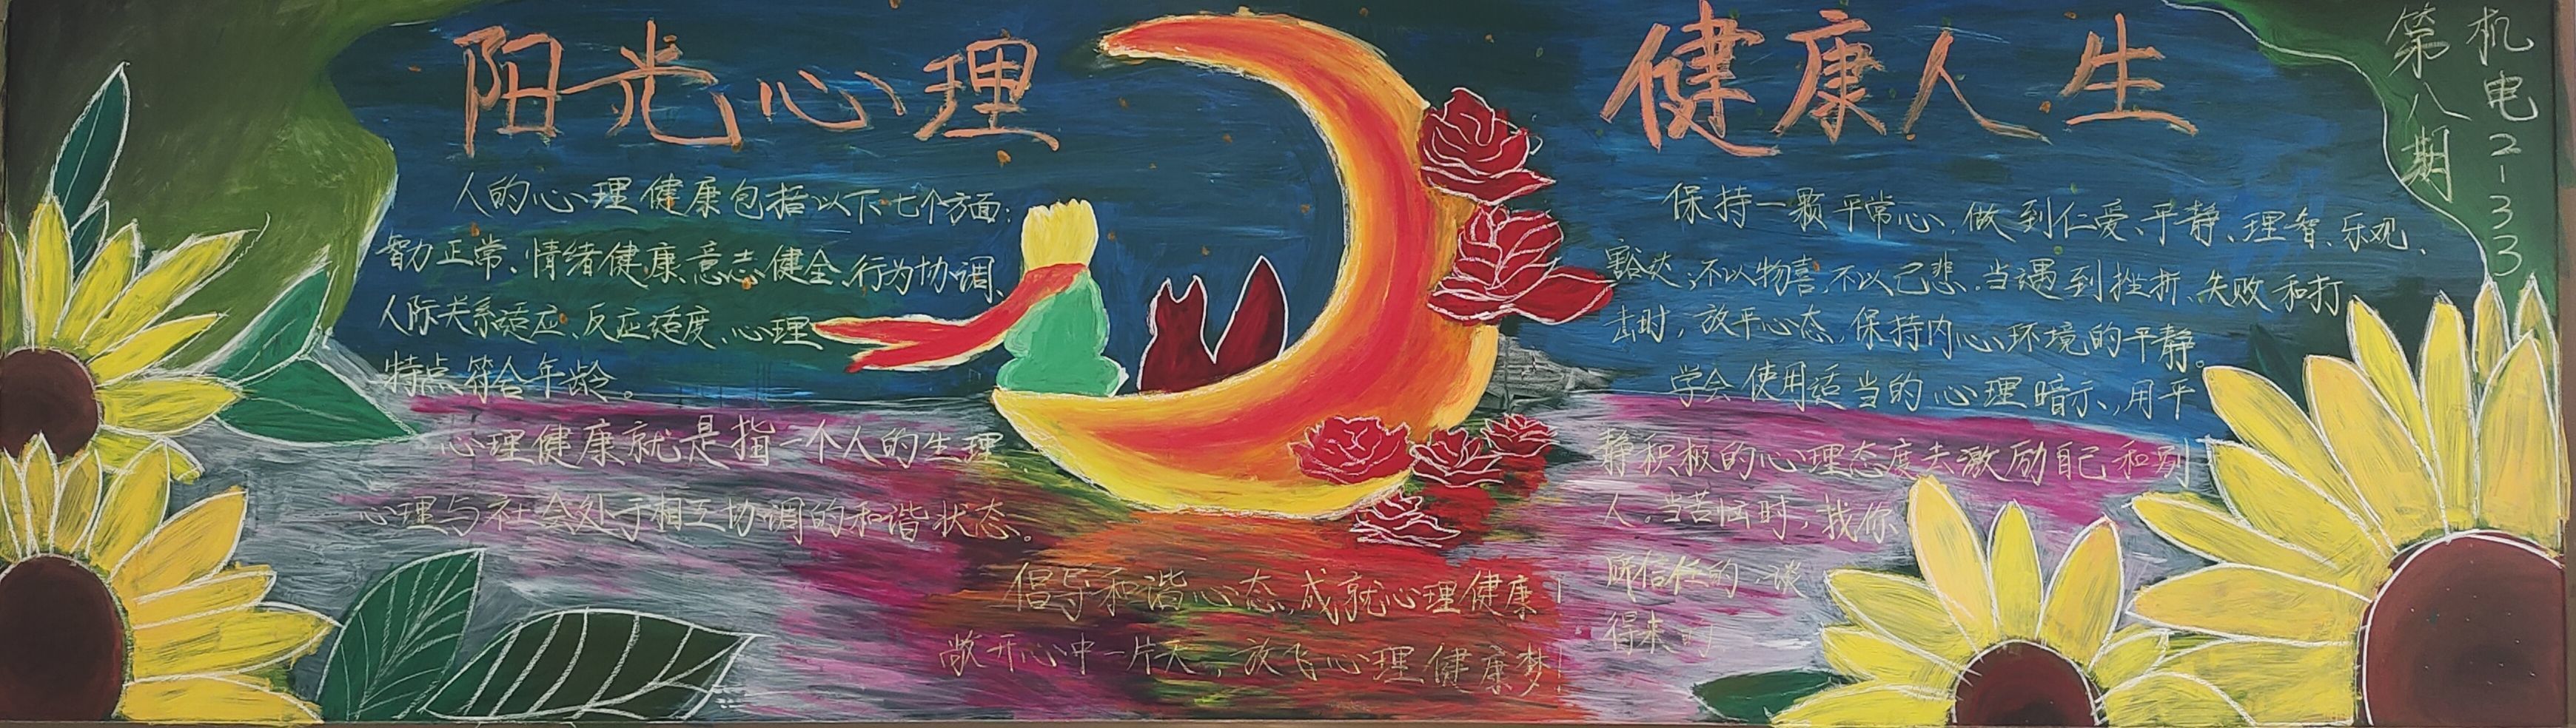 阳光心理
健康人生
机电2133
第八期
人的心理健康包括以下七个方面:
智力正常、情绪健康、意志健全、行为协调、
人际关系适应、反应适度、心理
特点符合年龄。
心理健康就是指一个人的生理、
心理与社会处于相互协调的和谐状态。
保持一颗平常心,做到仁爱、平静、理智、乐观、
豁达,不以物喜,不以己悲,当遇到挫折、失败和打
击时,放平心态,保持内心环境的平静。
学会使用适当的心理暗示,用平
静积极的心理态度去激励自己和别
人。当苦恼时,找你
所信任的、谈
得来的
倡导和谐心态,成就心理健康!
敞开心中一片天,放飞心理健康梦!